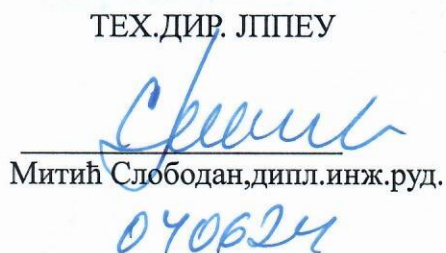 ТЕХ.ДИР. ЈППЕУ
Митић Слободан,дипл.инж.руд.
040624